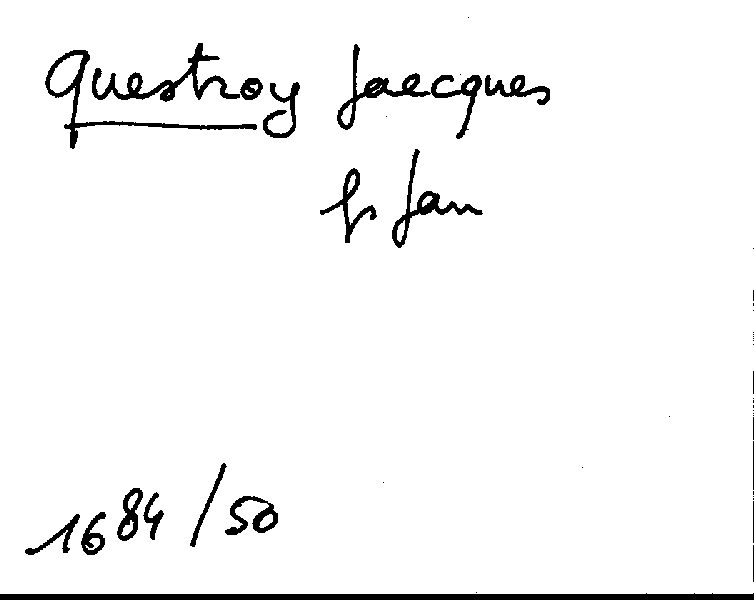 Questroy Jaecques
fs Jan
1684/50